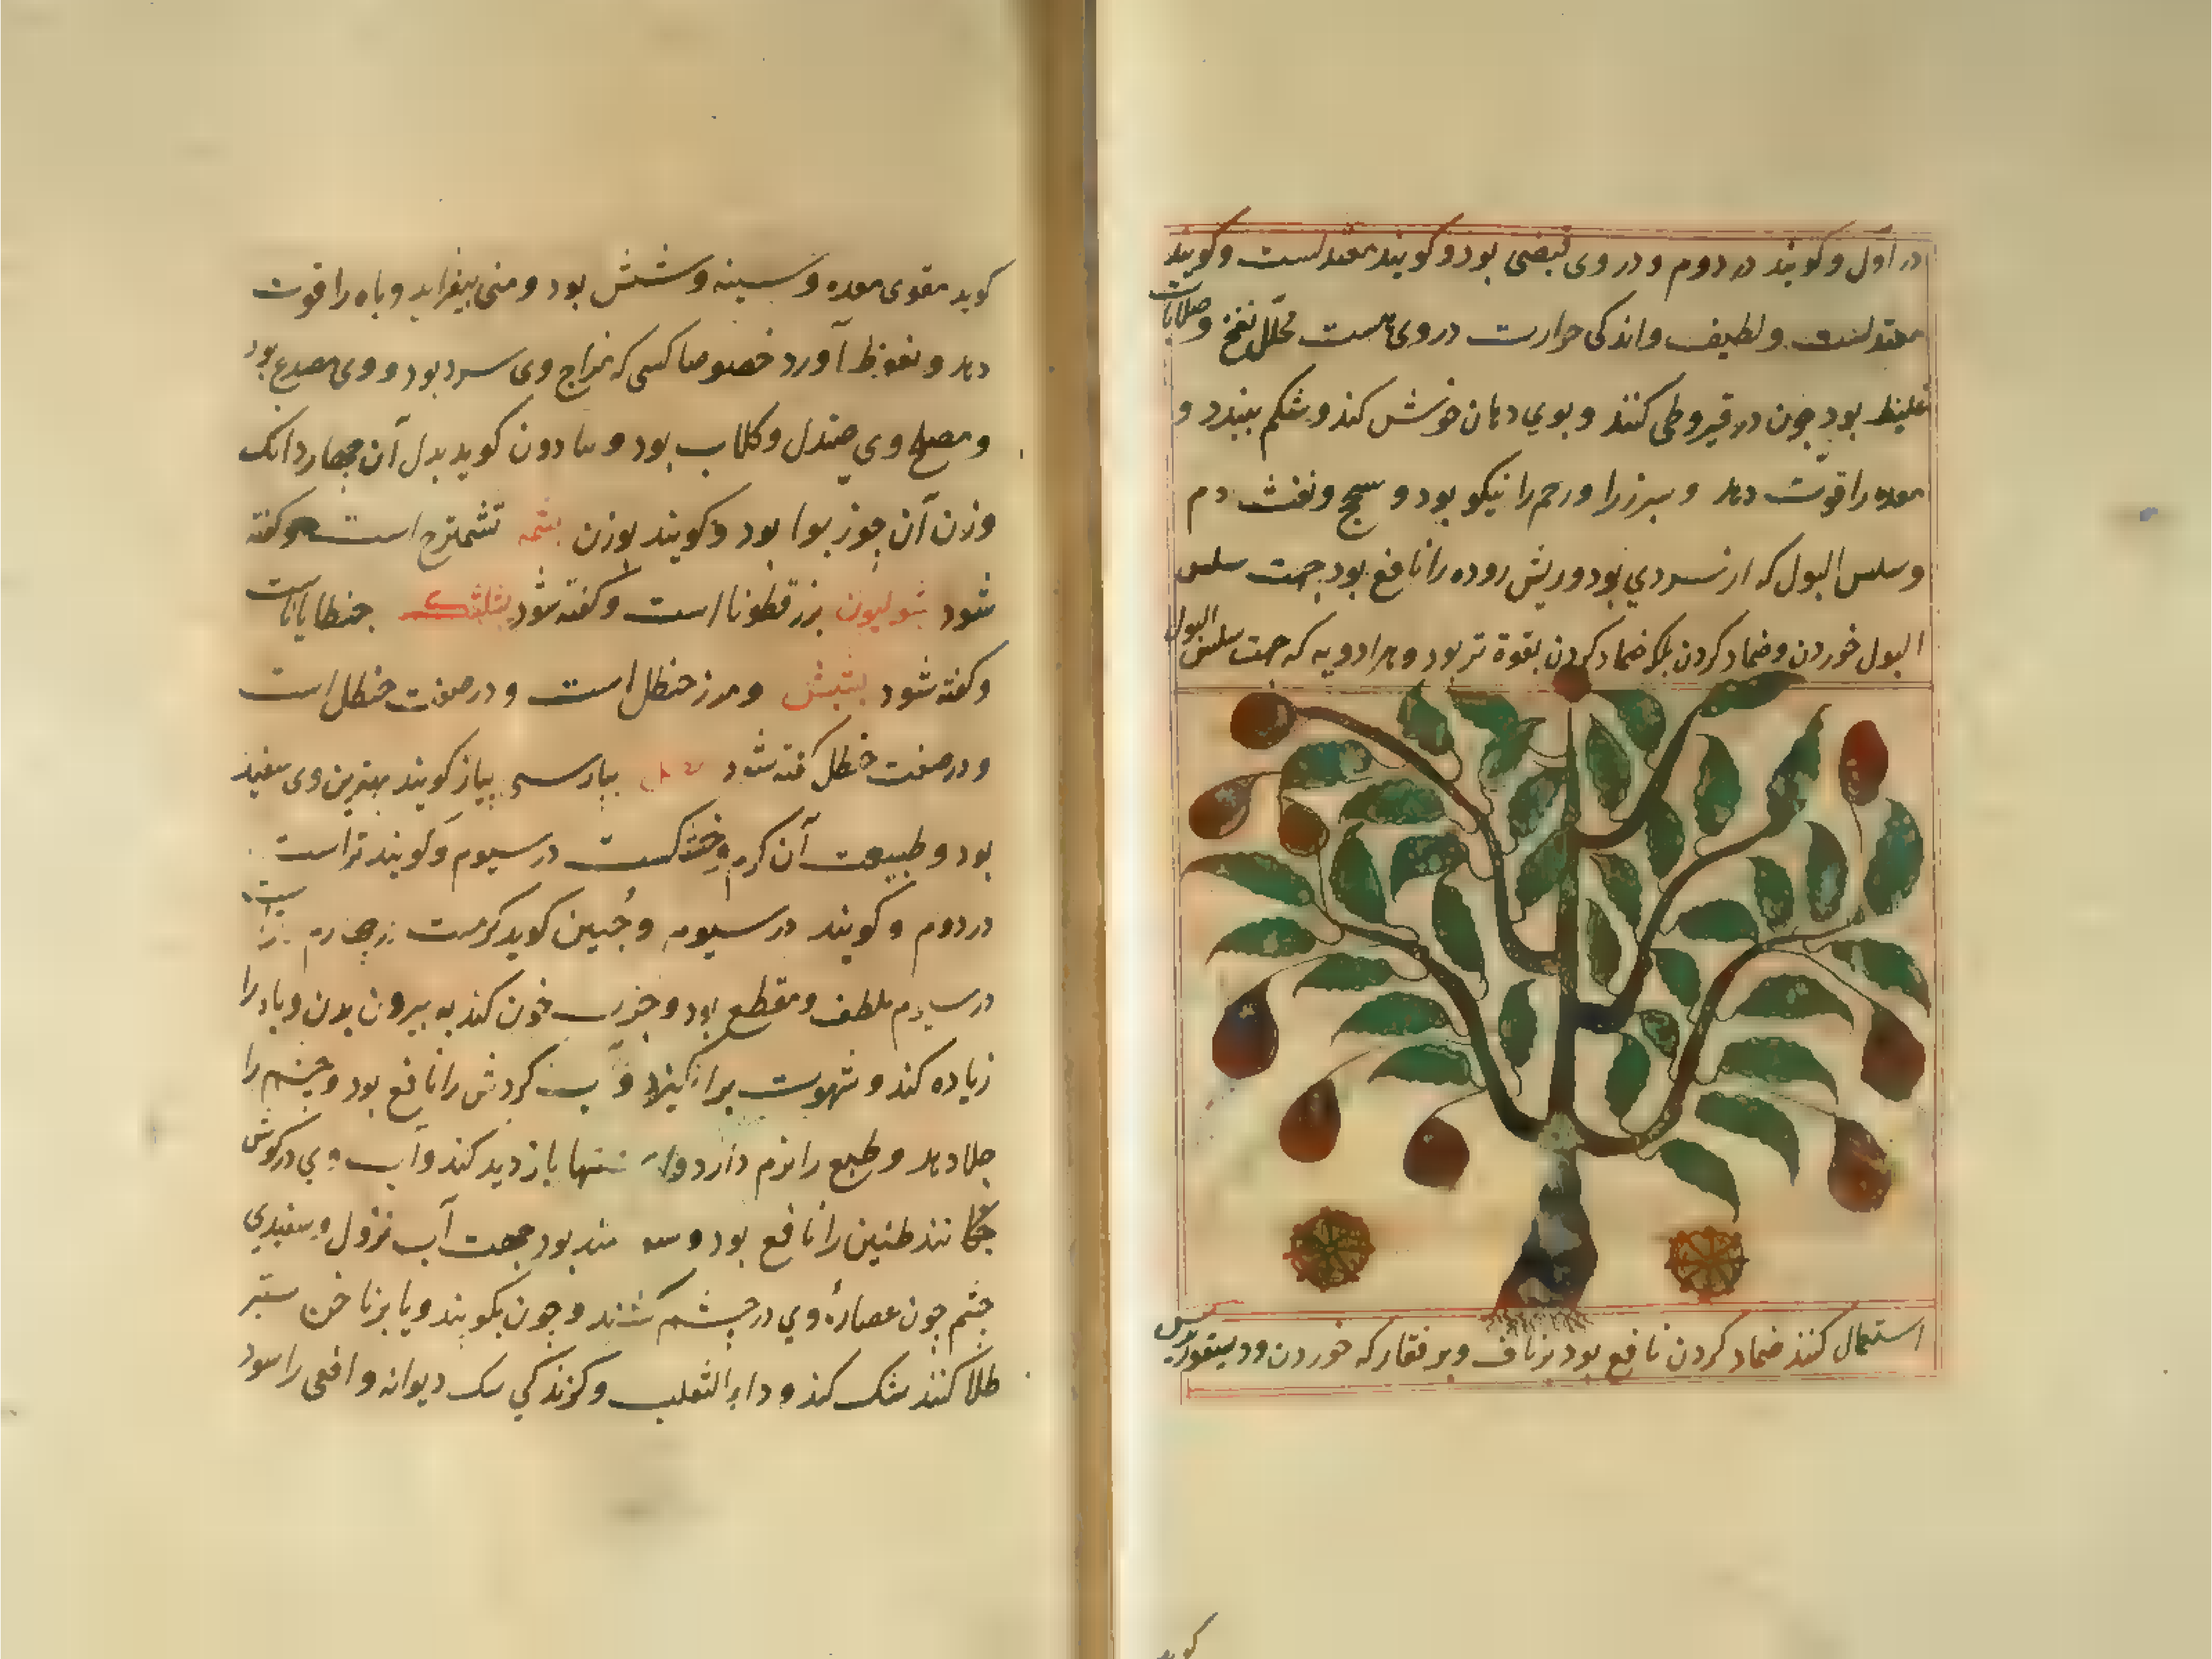 در اول وکویند در دوم و در وی قبضی بود وکویند معتدلست وکویند
معتدلست ولطیف واندکی حرارت در وی هست محلّل نفخ وصلابات
غلیظ بود جون در قیروطی کنند و بوي دهان خوش کند و شکم ببندد و
معده را قوّت دهد و سبرز را ورحم را نیکو بود و سحج ونفث دم
وسلس البول که از سردي بود وریش روده را نافع بود جهت سلس
البول خوردن وضماد کردن بلکه ضماد کردن بقوة تر بود وهر ادویه که جهت سلس البول
استعمال کنند ضماد کردن نافع بود بر ناف وبر فقار که خوردن
کوید
کوید مقوی معده و سینه وشش بود ومنی بیفزاید وباه را قوت
دهد ونعوظ آورد خصوصا کسی که مزاج وی سرد بود و وی مصدع بود
ومصلح وي صندل وکلاب بود و کوید بدل آن جهار دانک
وزن آن جوز بوا بود وکویند بوزن بشمه تشمیزج است وکفته
شود بزرقطونا است وکفته شود جنطایاناست
وکفته شود ومدر حنظل است ودر صفت حنظل است
ودر صفت حنظل کفته شد بپارسی پیاز کویند بهترین وی سفید
بود وطبیعت آن کرم وخشکست در سیوم وکویند تر است
در دوم وکویند در سیوم وحُنین کوید کرمست در جهارم
در سیوم ملطف ومقطع بود وجذب خون کند به بیرون بدن وباه را
زیاده کند وشهوت برانکیزد وآب کردش را نافع بود وجشم را
جلا دهد وطبع را نرم دارد باز دید کند وآب وي در کوش
جکانند طنین را نافع بود و سودمند بود جهت آب نزول وسفیدي
جشم جون عصارهٔ وي در جشم کشند وجون بکوبند ویا بر ناخن ستبر
طلا کنند کند وداء الثعلب وکزندکي سک دیوانه وافعی را سود